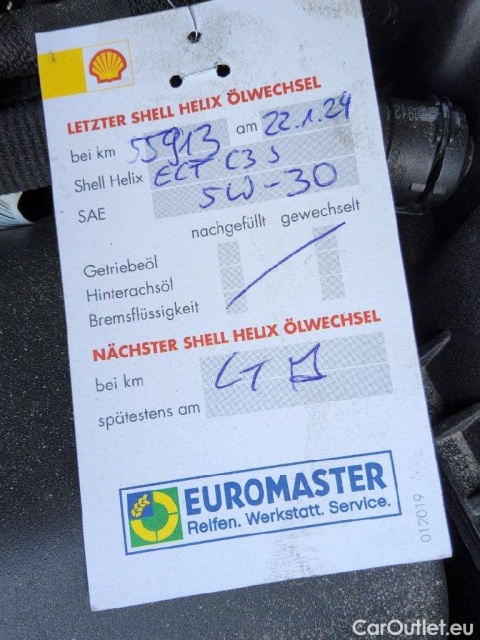 LETZTER SHELL HELIX ÖLWECHSEL
bei km 55913 am 22.1.24
Shell Helix ECT C3 S
SAE 5W-30
nachgefüllt gewechselt
Getriebeöl
Hinterachsöl
Bremsflüssigkeit
NÄCHSTER SHELL HELIX ÖLWECHSEL
bei km
spätestens am
EUROMASTER
Reifen. Werkstatt. Service.
012019
CarOutlet.eu